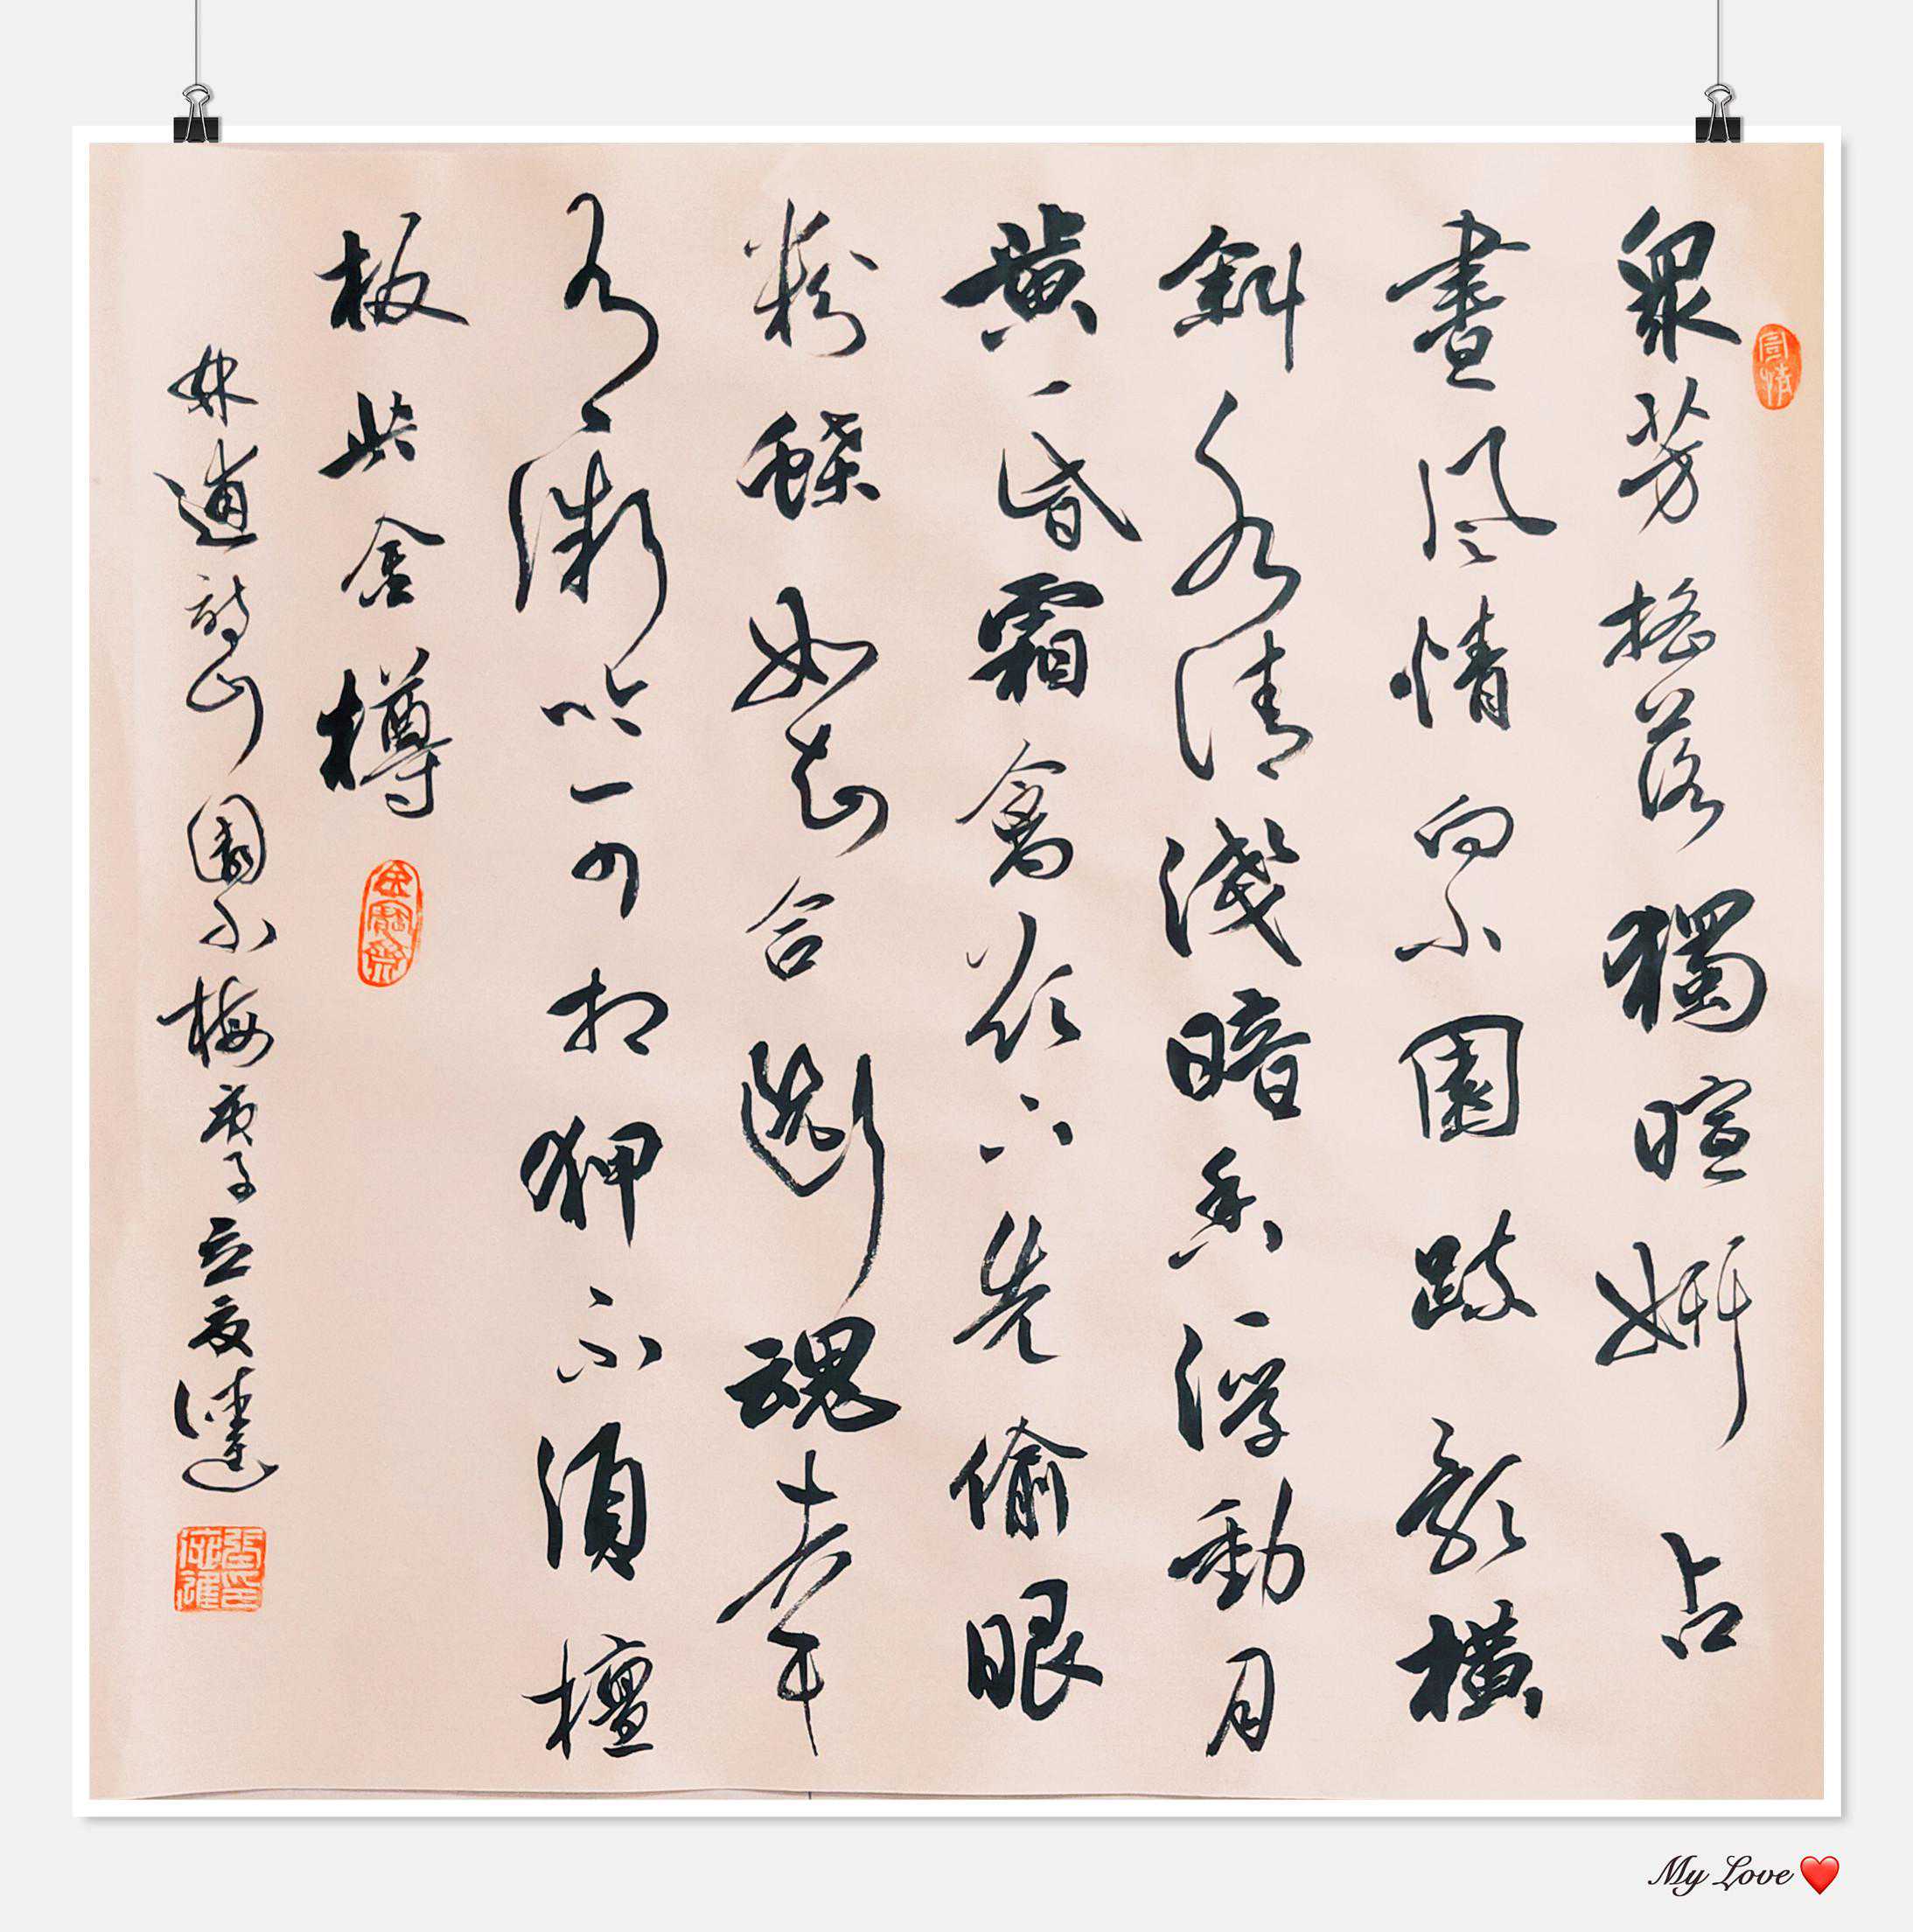 眾芳搖落獨暄妍占
盡風情向小園踈影橫
斜水清淺暗香浮動月
黃昏霜禽欲下先偷眼
粉蝶如知合斷魂幸
有微吟可相狎不須檀
板共金樽
林逋詩山園小梅庚子立夏
My Love